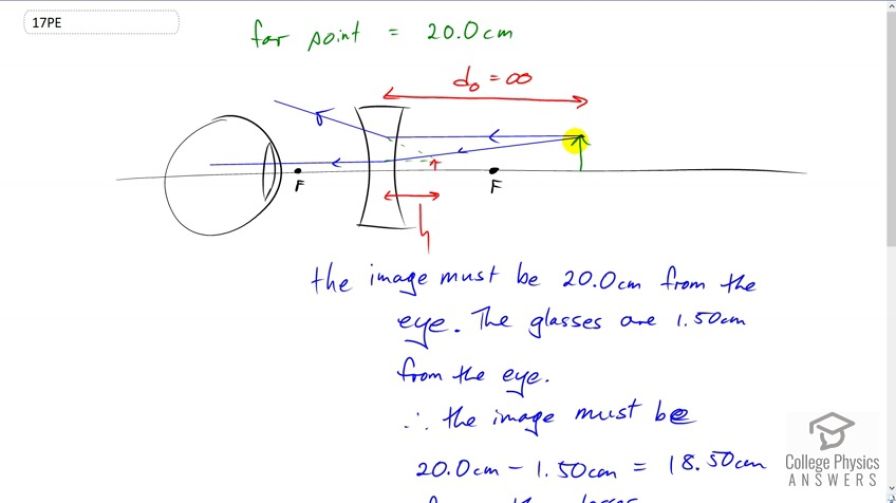 17PE
far point = 20.0cm
d₀ = ∞
F
F
the image must be 20.0cm from the
eye. The glasses are 1.50cm
from the eye.
∴ the image must be
20.0cm - 1.50cm = 18.50cm
College Physics
ANSWERS